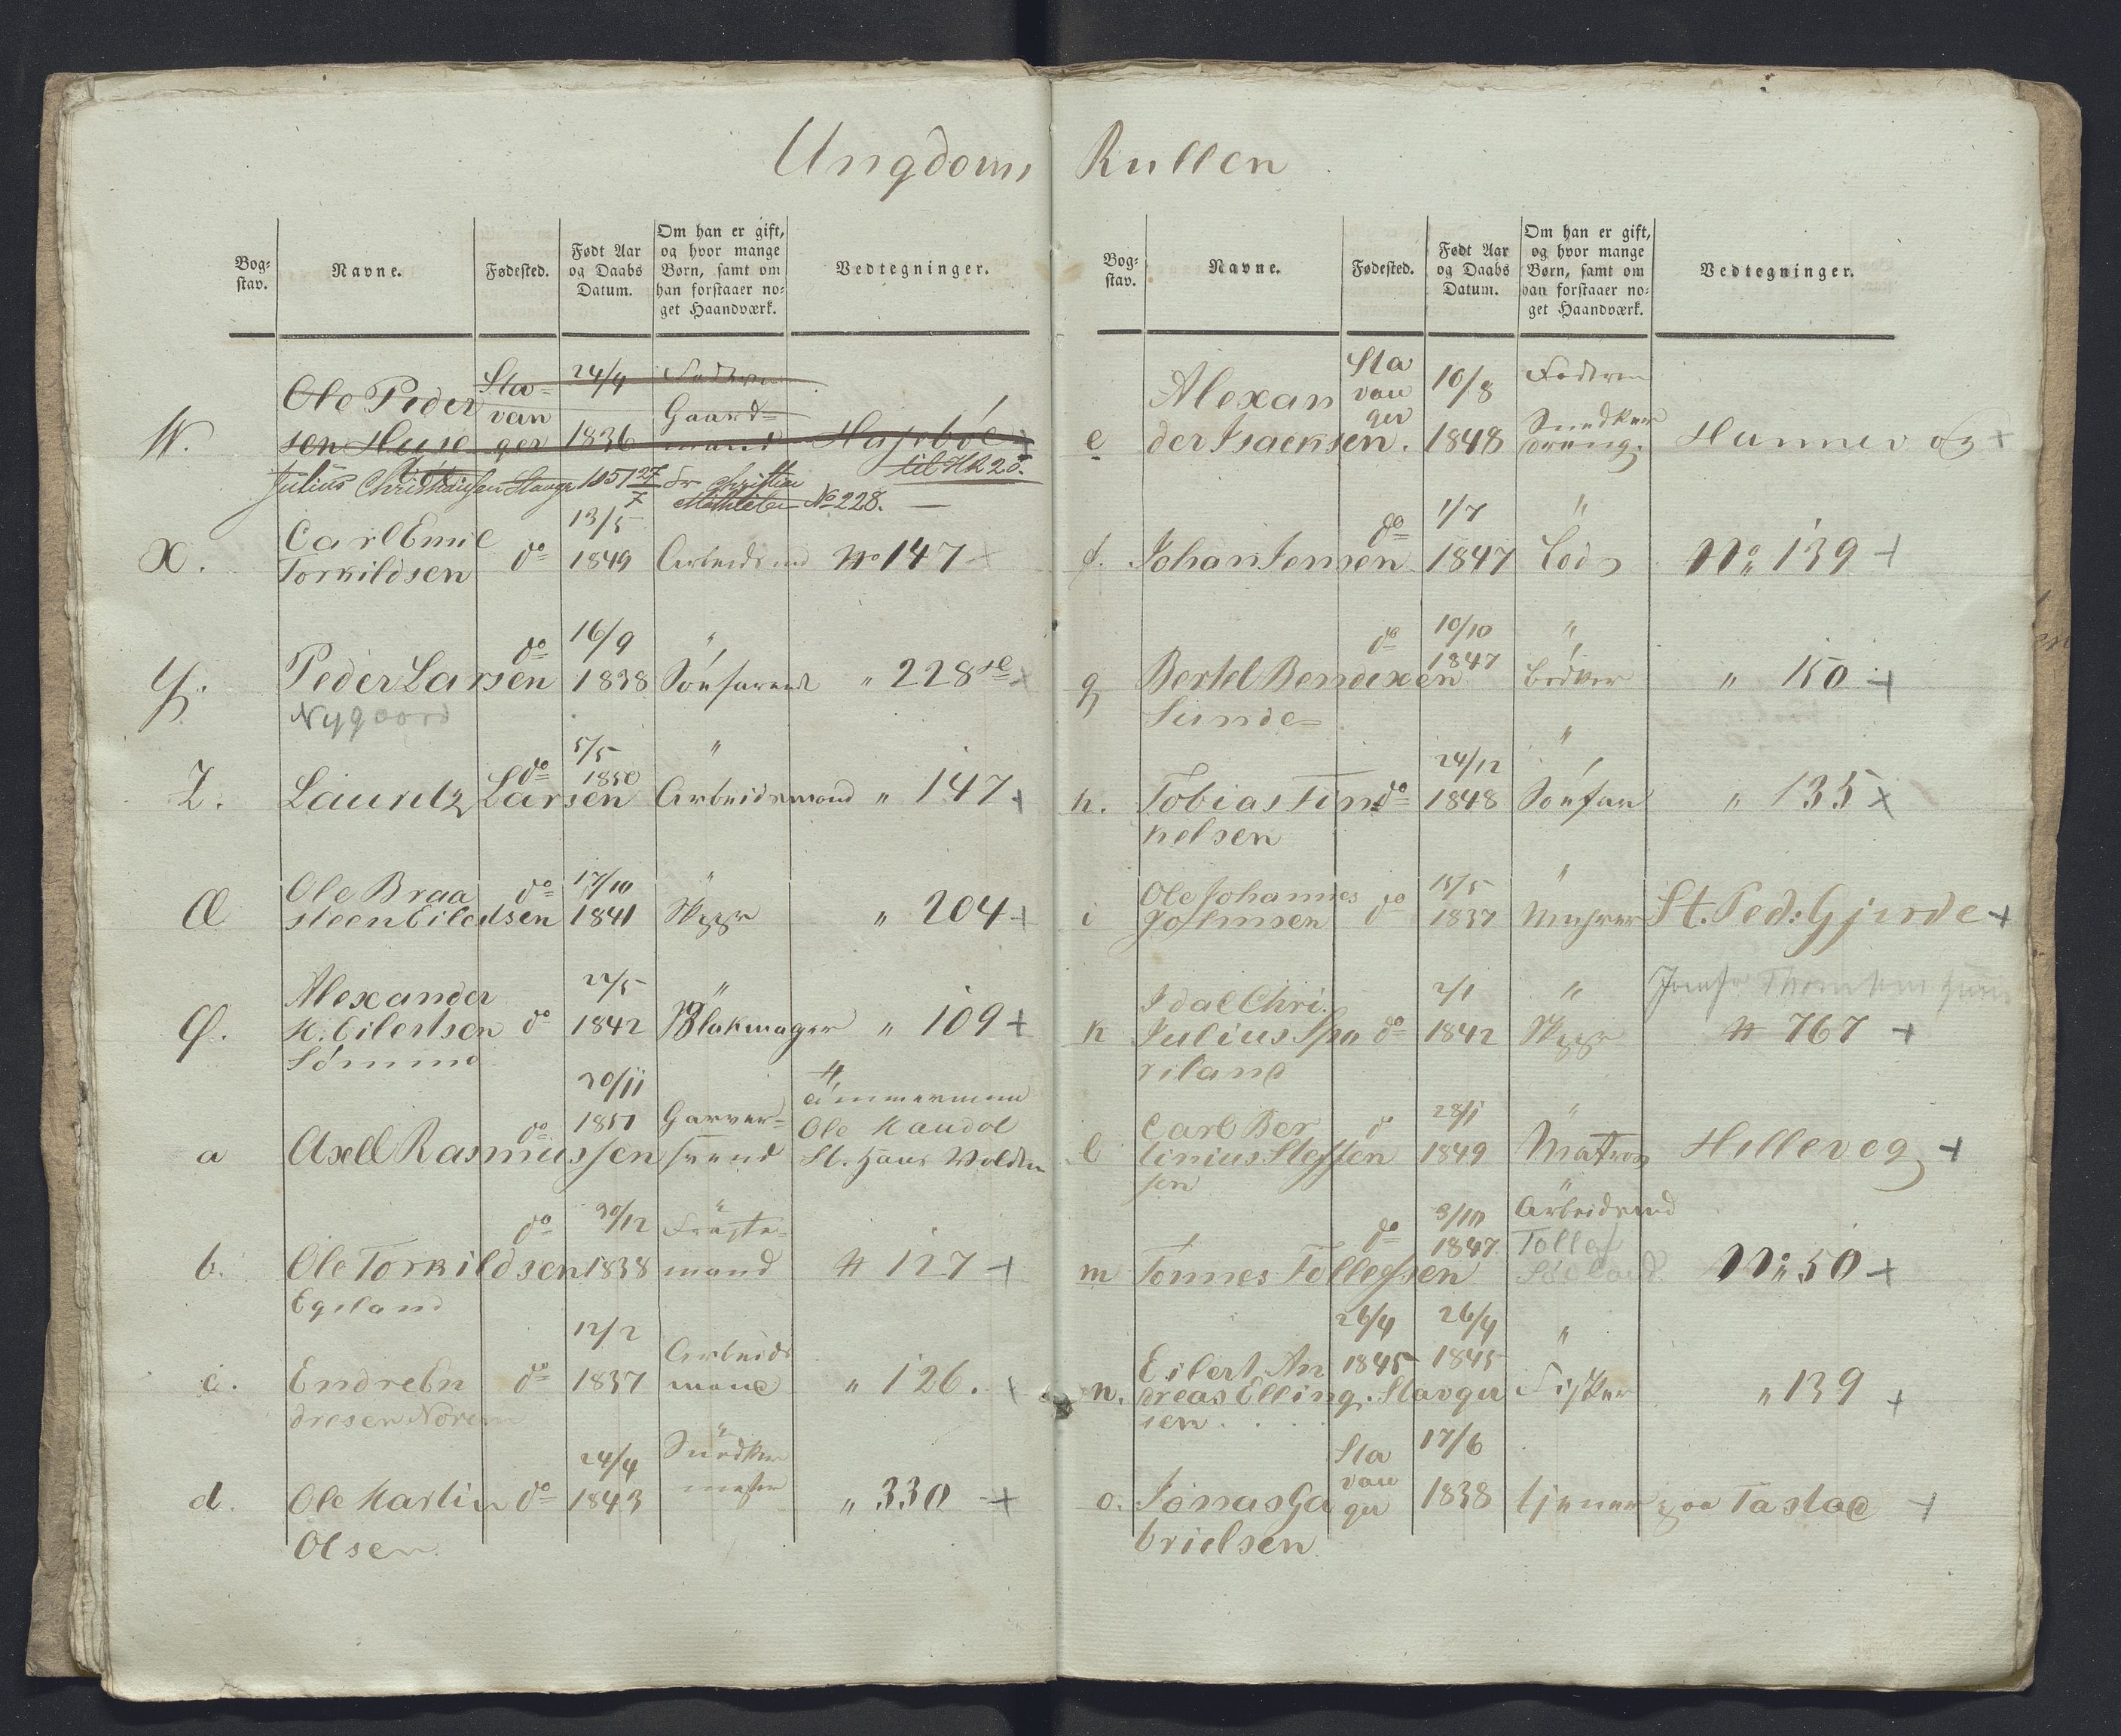 Ungdoms Rullen
Bog-
stav.
Navne.
Fødested.
Født Aar
og Daabs
Datum.
Om han er gift,
og hvor mange
Børn, samt om
han forstaaer no-
get Haandværk.
Vedtegninger.
W.
Ole Peder
sen Huse
Sta-
van
ger
24/4
1836
Faderen
Gaard-
mand
til HR 20.
Julius Christiansen Stavgr 1851 27/7
No 228.
X.
Carl Emil
Torkildsen
do
13/5
1849
Arbeidsmd
No 147 +
Y.
Peder Larsen
Nygaard
do
16/9
1838
"
" 228 +
Z.
Lauritz Larsen
do
5/5
1850
"
Arbeidsmand
" 147 +
Æ
Ole Braa
steen Eilertsen
do
17/10
1841
"
" 204 +
Ø.
Alexander
H. Eilertsen
Sømme
do
22/5
1842
"
Blokmager
" 109 +
a
Axell Rasmussen
do
20/11
1851
Garver-
svend
Ole Haudal
St. Hans Volden
b.
Ole Torkildsen
Egeland
do
30/12
1838
"
mand
# 127 +
c.
Endre En
dresen Norem
do
12/2
1837
Arbeids
mand
" 126. +
d.
Ole Martin
Olsen
do
24/4
1843
"
Snedker
mester
" 330 +
Bog-
stav.
Navne.
Fødested.
Født Aar
og Daabs
Datum.
Om han er gift,
og hvor mange
Børn, samt om
han forstaaer no-
get Haandværk.
Vedtegninger.
e
Alexan
der Isacksen.
Sta
van
ger
10/8
1848
Faderen
Snedker
dreng.
+
f.
Johan Jensen
do
1/7
1847
"
Lods
No 139 +
g
Bertel Bendixen
Sunde
do
10/10
1847
"
Bødker
" 150 +
h.
Tobias Tøn
nelsen
do
24/12
1848
"
Søefar
" 135 +
i
Ole Johannes
Johnsen
do
15/5
1837
"
Murer
St. Ped: Gjerde +
k
Idal Chri.
Julius Spa
riland
do
2/1
1842
"
# 767 +
l
Carl Ber
tinius Steffen
sen
do
28/1
1849
"
Matros
Hillevog +
m
Tønnes Tollefsen
do
3/10
1847
"
Arbeidsmd
Tollef
No 50 +
n.
Eilert An
dreas Elling
sen
26/4
1845
Stavger
26/4
1845
"
Fisker
" 139 +
o.
Jonas Ga
brielsen
Sta
van
ger
17/6
1838
tjener paa Tastad +